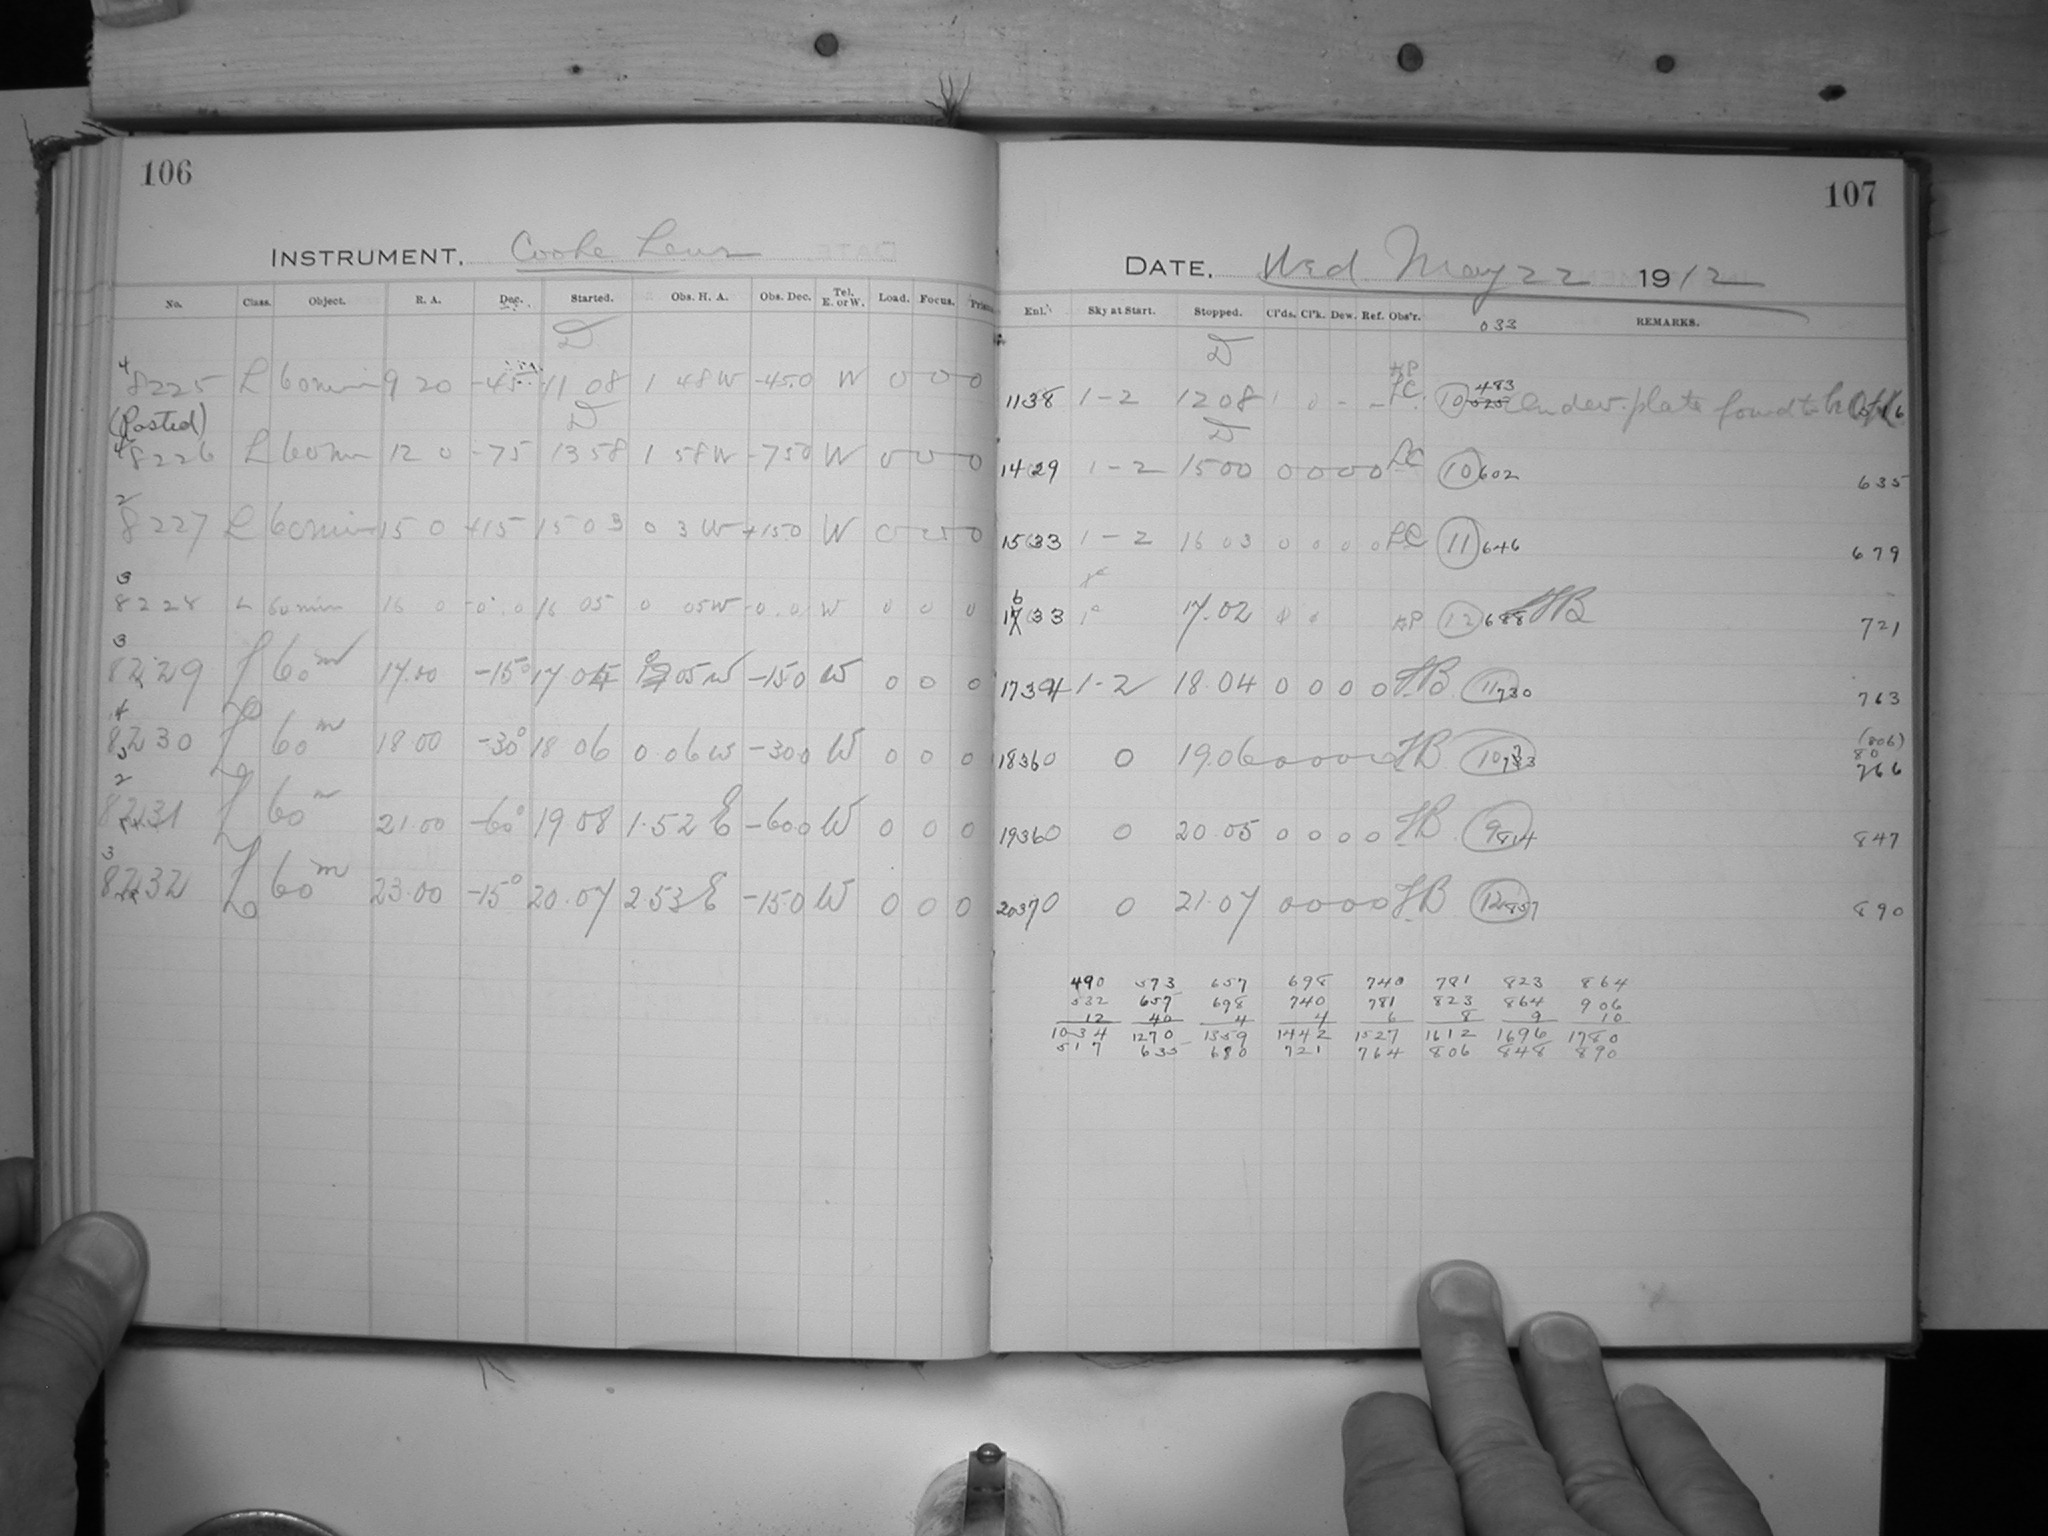 106
INSTRUMENT. Cooke Lens
No. Class. Object. R. A. Dec. Started. Obs. H. A. Obs. Dec. Tel. E. or W. Load. Focus.
D
4
8225 L 60 min 9 20 -45 11 08 1 48 W -45.0 W 0 0 0
(Posted) D
4
8226 L 60 min 12 0 -75 13 58 1 58 W -75.0 W 0 0 0
2
8227 L 60 min 15 0 +15 15 03 0 3 W +15.0 W 0 0 0
3
8228 L 60 min 16 0 -0.0 16 05 0 05 W -0.0 W 0 0 0
3
8229 L 60m 17.00 -15° 17 04 05 W -15.0 W 0 0 0
4
8230 L 60m 18 00 -30° 18 06 0.06 W -30.0 W 0 0 0
2
8231 L 60m 21.00 -60° 19 08 1.52 E -60.0 W 0 0 0
3
8232 L 60m 23.00 -15° 20.07 2 53 E -15.0 W 0 0 0
107
DATE. Wed May 22 1912
Enl. Sky at Start. Stopped. Cl'ds. Cl'k. Dew. Ref. Obs'r. 033 REMARKS.
D
1138 1-2 12 08 1 0 - - LC 10 483 plate found to be
D
14 29 1-2 15 00 0 0 0 0 LC 10 602 635
15 33 1-2 16 03 0 0 0 0 LC 11 646 679
6
17 33 17.02 12 688 FB 721
17 34 1-2 18.04 0 0 0 0 FB 11 730 763
(806)
18360 0 19.06 0 0 0 0 FB 10 80 766
19360 0 20.05 0 0 0 0 FB 9 814 847
20370 0 21.07 0 0 0 0 FB 12 857 890
490 573 657 698 740 781 823 864
532 657 698 740 781 823 864 906
12 40 4 4 6 8 9 10
1034 1270 1359 1442 1527 1612 1696 1780
517 635 680 721 764 806 848 890